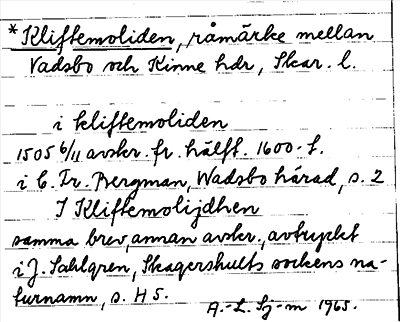 *Kliftemoliden, råmärke mellan
Vadsbo och Kinne hdr, Skar. l.
i kliftemoliden
1505 6/11 avskr. fr. hälft. 1600-t.
i C. Fr. Bergman, Wadsbo härad, s. 2
J Kliftemolijdhen
samma brev, annan avskr., avtryckt
i J. Sahlgren, Skagershults sockens na-
turnamn, s. 45.
A.-L. Sj-m 1965.